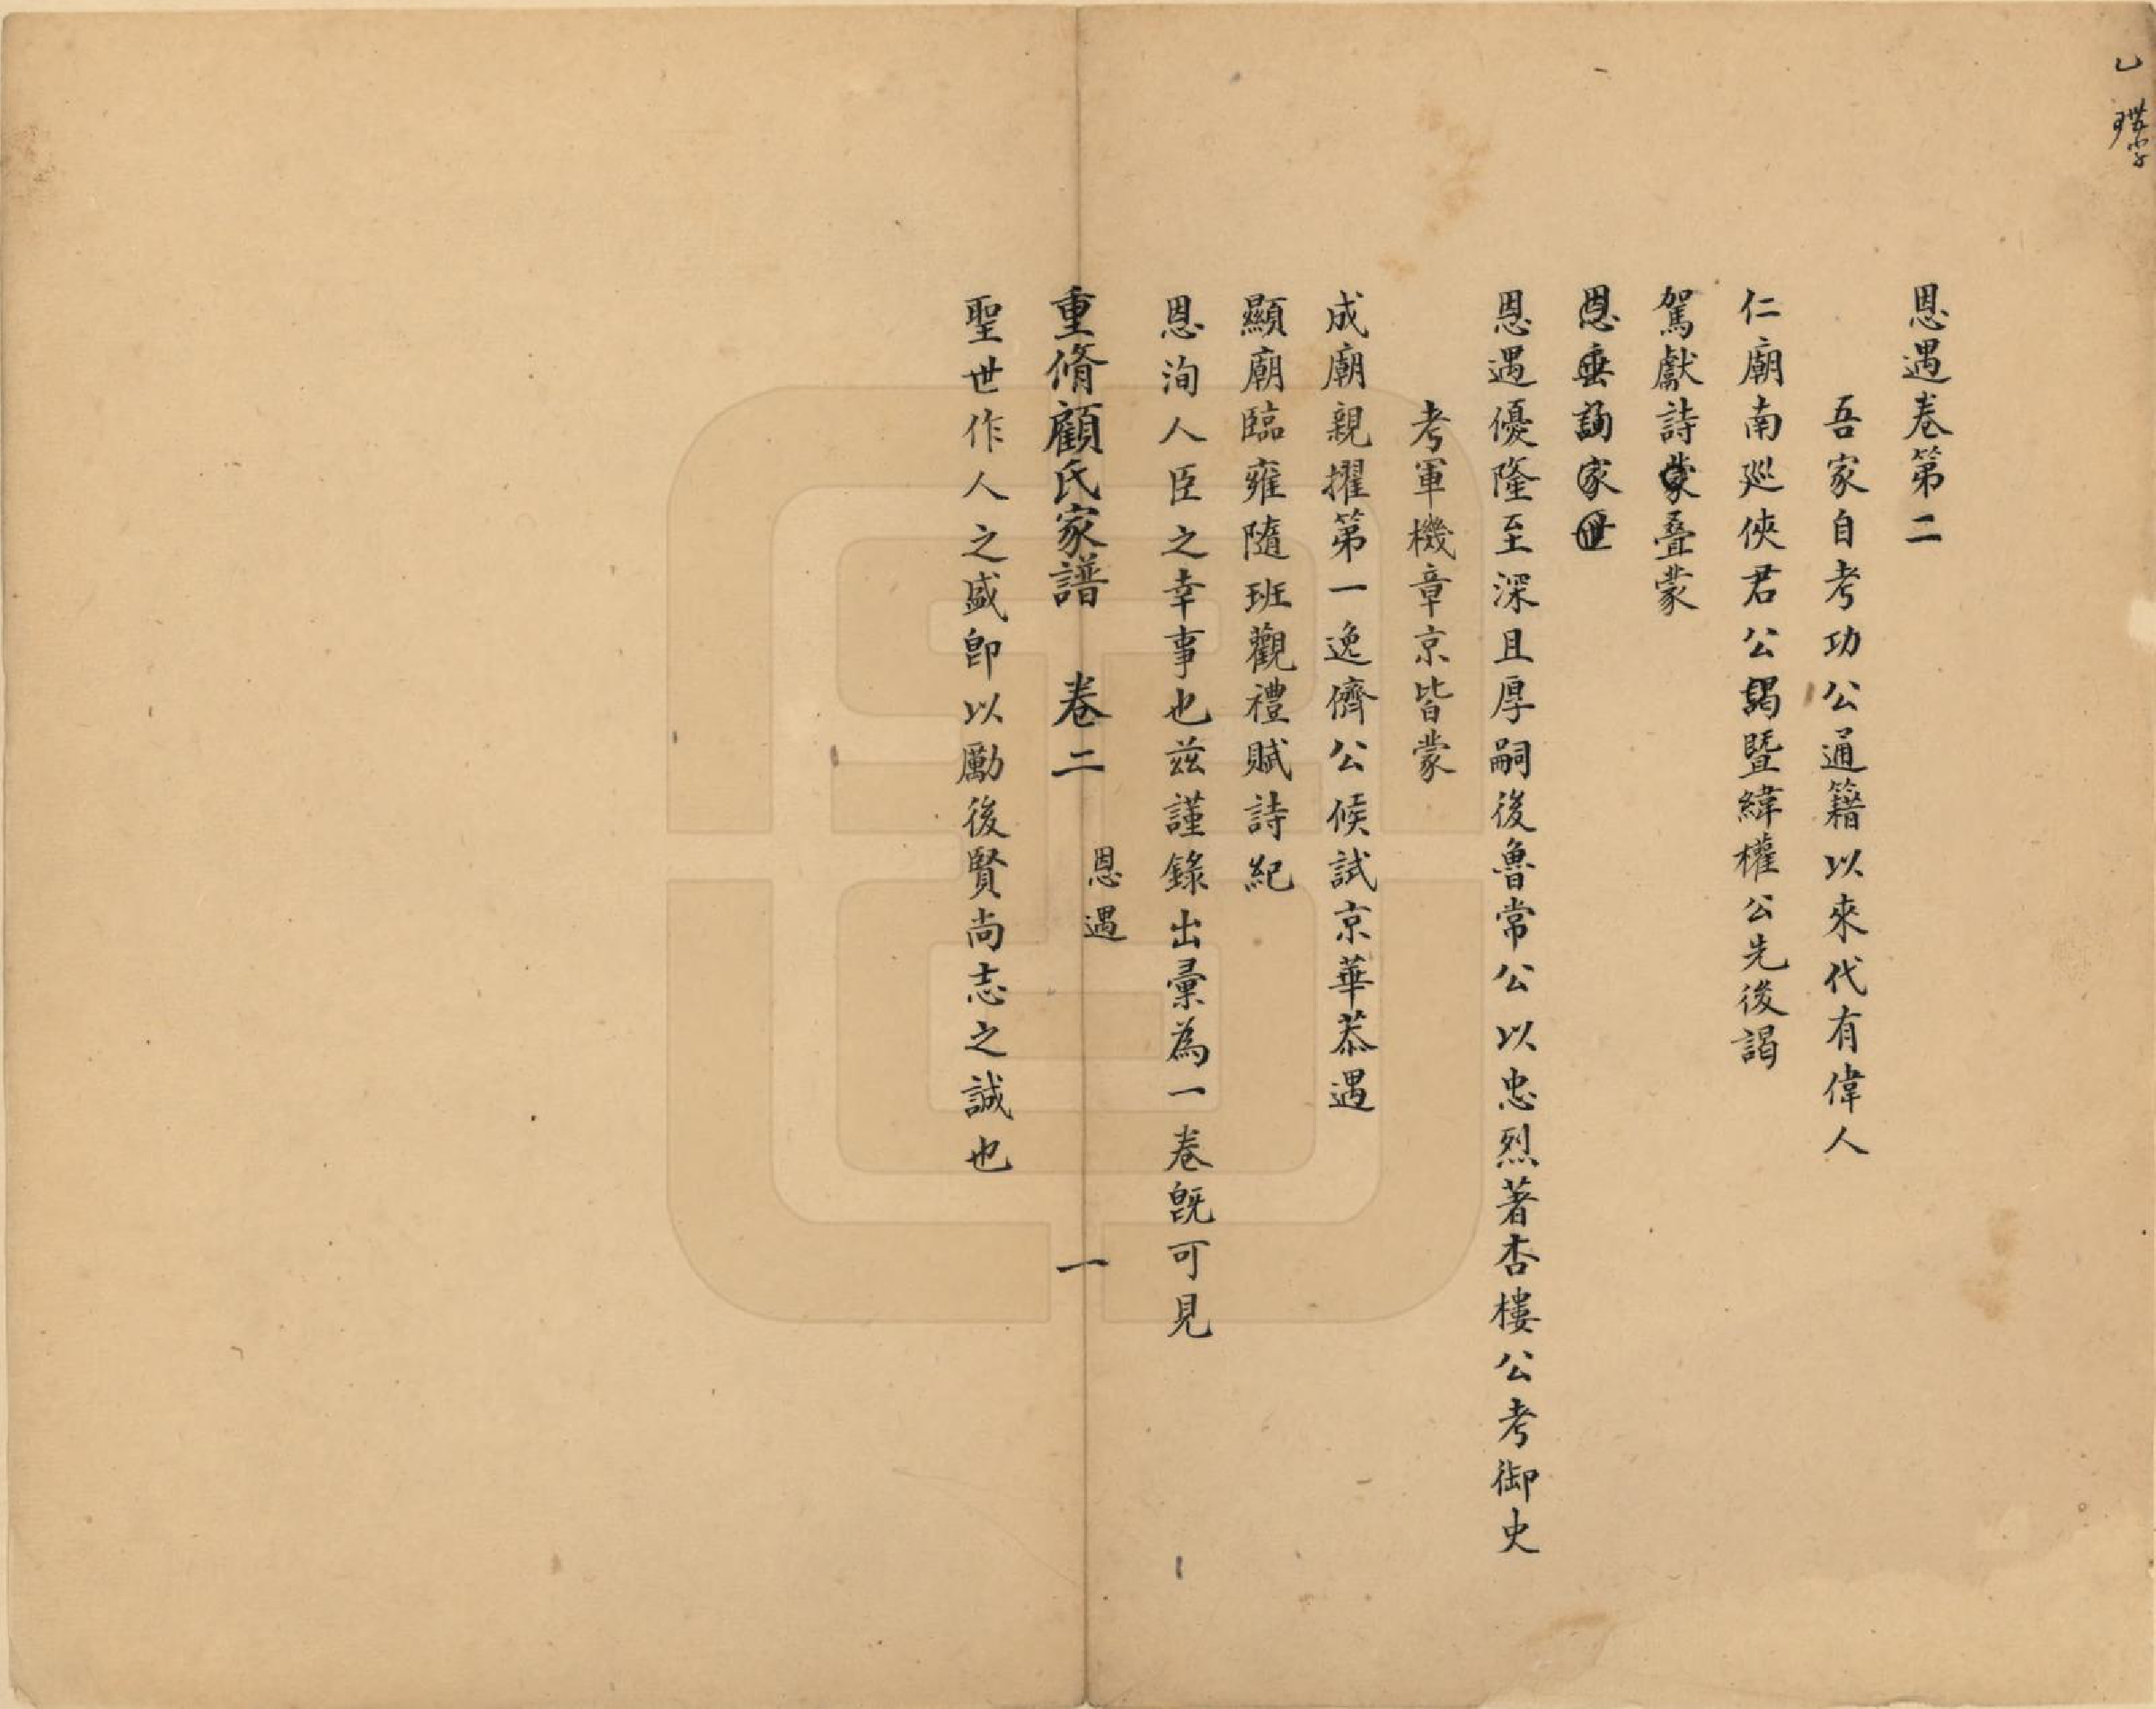 恩遇卷第二
吾家自考功公通籍以來代有偉人
仁廟南廵俠君公謁暨緯權公先後謁
駕獻詩蒙叠蒙
恩垂詢家世
恩遇優隆至深且厚嗣後魯常公以忠烈著杏樓公考御史
考軍機章京皆蒙
成廟親擢第一逸儕公候試京華恭遇
顯廟臨雍隨班觀禮賦詩紀
恩洵人臣之幸事也兹謹錄出彙為一卷旣可見
重脩顧氏家譜 卷二 恩遇 一
聖世作人之盛卽以勵後賢尚志之誠也